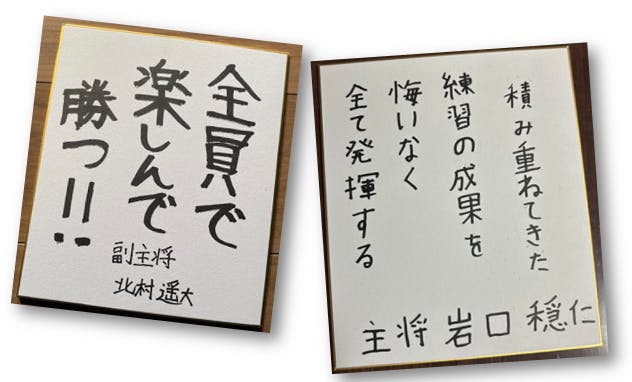 全員で
楽しんで
勝つ!!
副主将
北村遥大
積み重ねてきた
練習の成果を
悔いなく
全て発揮する
主将 岩口 穏仁